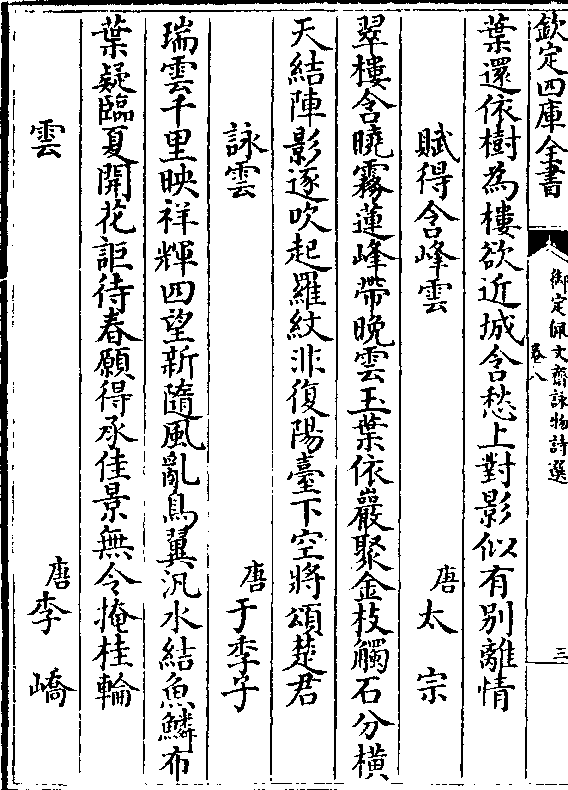 欽定四庫全書
御定佩文齋詠物詩選
卷八
三
葉還依樹為樓欲近城含愁上對影似有别離情
賦得含峰雲
唐太宗
翠樓含曉霧蓮峰帶晚雲玉葉依巖聚金枝觸石分橫
天結陣影逐吹起羅紋非復陽臺下空將頌楚君
詠雲
唐于季子
瑞雲千里映祥輝四望新隨風亂鳥翼汎水結魚鱗布
葉疑臨夏開花詎待春願得承佳景無令掩桂輪
雲
唐李嶠